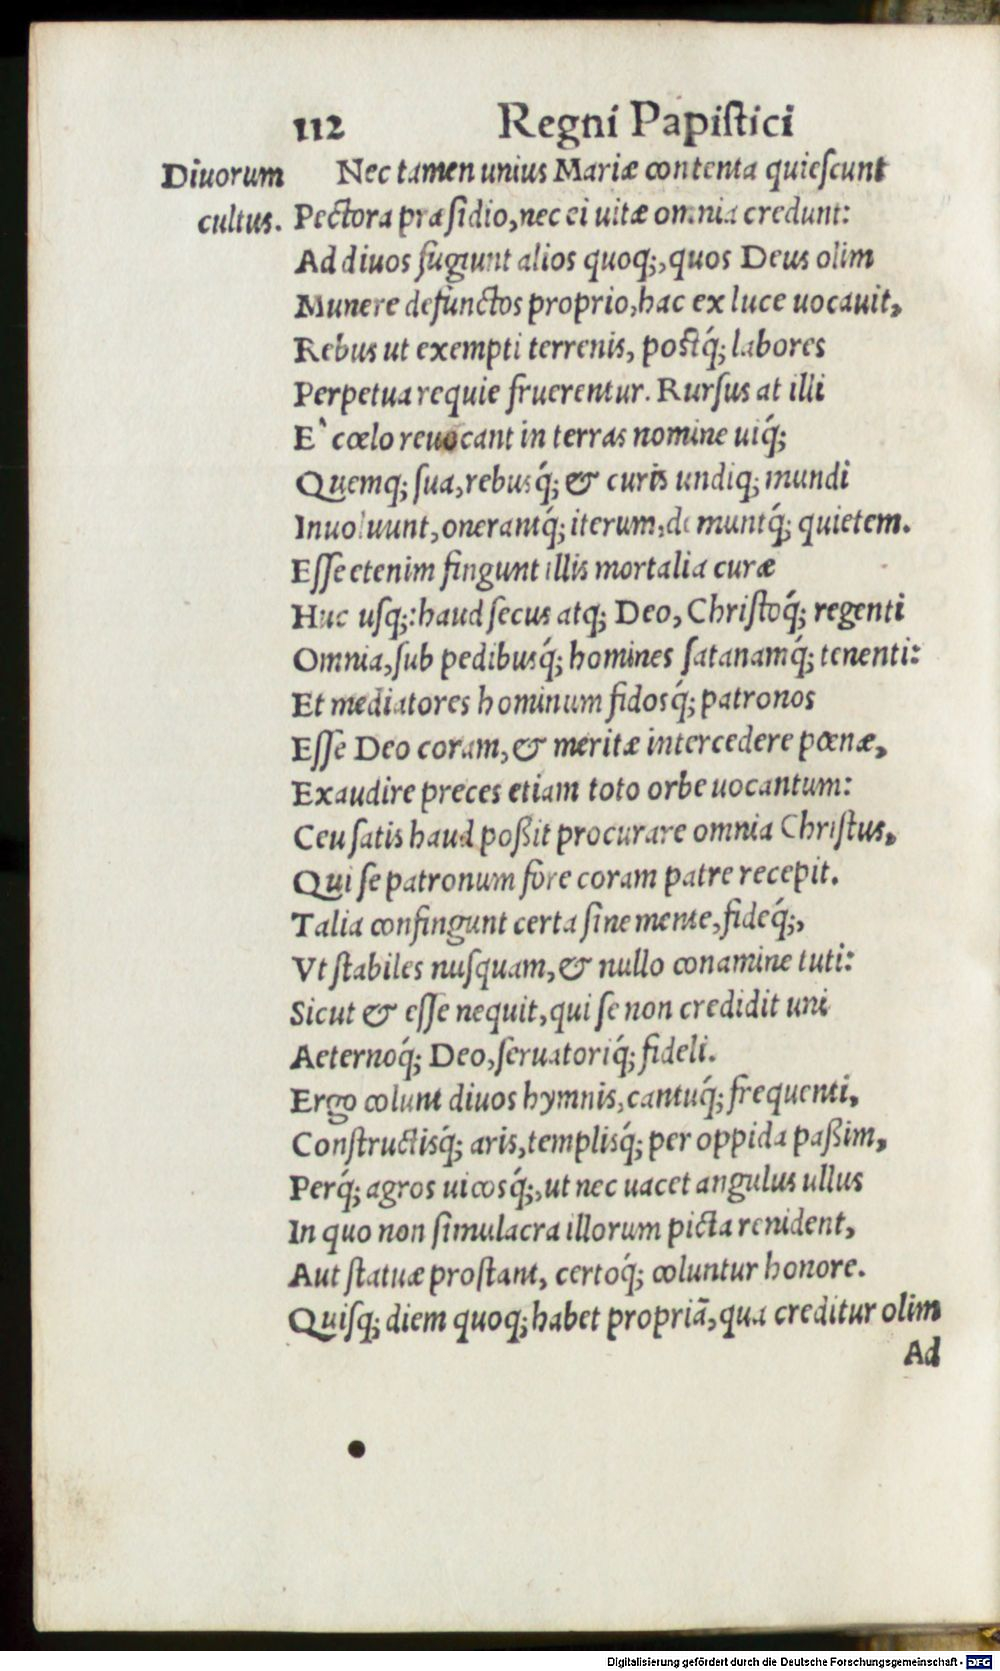 112 Regni Papiſtici
Diuorum cultus.
Nec tamen unius Mariæ contenta quieſcunt
Pectora præſidio, nec ei uitæ omnia credunt:
Ad diuos fugiunt alios quoq;, quos Deus olim
Munere defunctos proprio, hac ex luce uocauit,
Rebus ut exempti terrenis, poſtq́; labores
Perpetua requie fruerentur. Rurſus at illi
E` cœlo reuocant in terras nomine uiq́;
Quemq; ſua, rebusq́; & curis undiq; mundi
Inuoluunt, onerantq́; iterum, demuntq́; quietem.
Eſſe etenim fingunt illis mortalia curæ
Huc uſq;: haud ſecus atq; Deo, Chriſtoq́; regenti
Omnia, ſub pedibusq́; homines ſatanamq́; tenenti:
Et mediatores hominum fidosq́; patronos
Eſſe Deo coram, & meritæ intercedere pœnæ,
Exaudire preces etiam toto orbe uocantum:
Ceu ſatis haud poßit procurare omnia Chriſtus,
Qui ſe patronum fore coram patre recepit.
Talia confingunt certa ſine mente, fideq́;,
Vt ſtabiles nuſquam, & nullo conamine tuti:
Sicut & eſſe nequit, qui ſe non credidit uni
Aeternoq́; Deo, ſeruatoriq́; fideli.
Ergo colunt diuos hymnis, cantuq́; frequenti,
Conſtructisq́; aris, templisq́; per oppida paßim,
Perq́; agros uicosq́;, ut nec uacet angulus ullus
In quo non ſimulacra illorum picta renident,
Aut ſtatuæ proſtant, certoq́; coluntur honore.
Quiſq; diem quoq; habet propriã, qua creditur olim
Ad
Digitalisierung gefördert durch die Deutsche Forschungsgemeinschaft - DFG